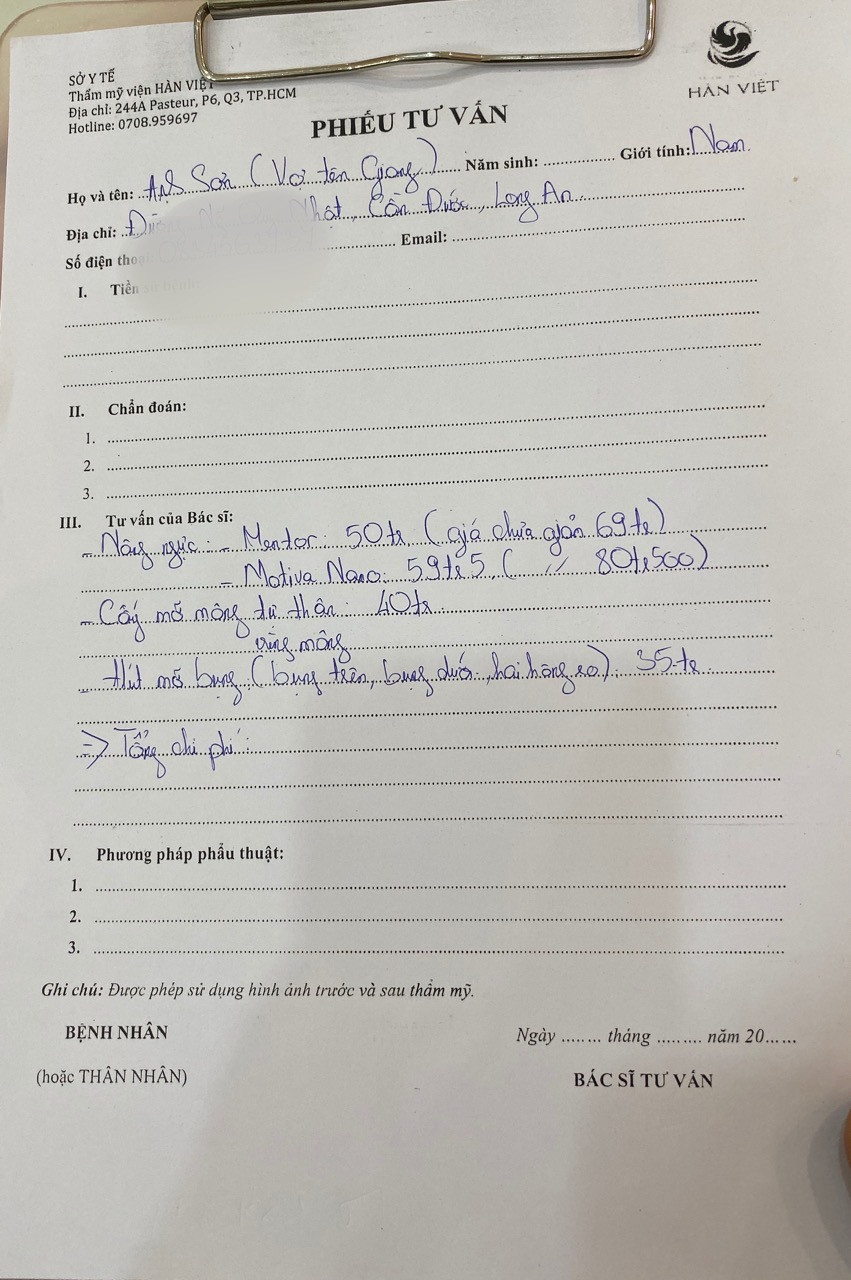 SỞ Y TẾ
Thẩm mỹ viện HÀN VIỆT
Địa chỉ: 244A Pasteur, P6, Q3, TP.HCM
Hotline: 0708.959697
HÀN VIỆT
PHIẾU TƯ VẤN
Họ và tên: Anh Sơn (Vợ tên Giang) Năm sinh: Giới tính: Nam
Địa chỉ: Nhật, Cần Đước, Long An
Số điện tho Email:
I. Tiền
II. Chẩn đoán:
1.
2.
3.
III. Tư vấn của Bác sĩ:
- Nâng ngực: - Mentor: 50tr (giá chưa giảm 69tr)
- Motiva Nano: 59tr5 ( // 80tr500)
- Cấy mỡ mông tự thân: 40tr
vùng mông
- Hút mỡ bụng (bụng trên, bụng dưới, hai hông eo): 35tr
=> Tổng chi phí:
IV. Phương pháp phẩu thuật:
1.
2.
3.
Ghi chú: Được phép sử dụng hình ảnh trước và sau thẩm mỹ.
BỆNH NHÂN
Ngày ........ tháng ......... năm 20......
(hoặc THÂN NHÂN)
BÁC SĨ TƯ VẤN